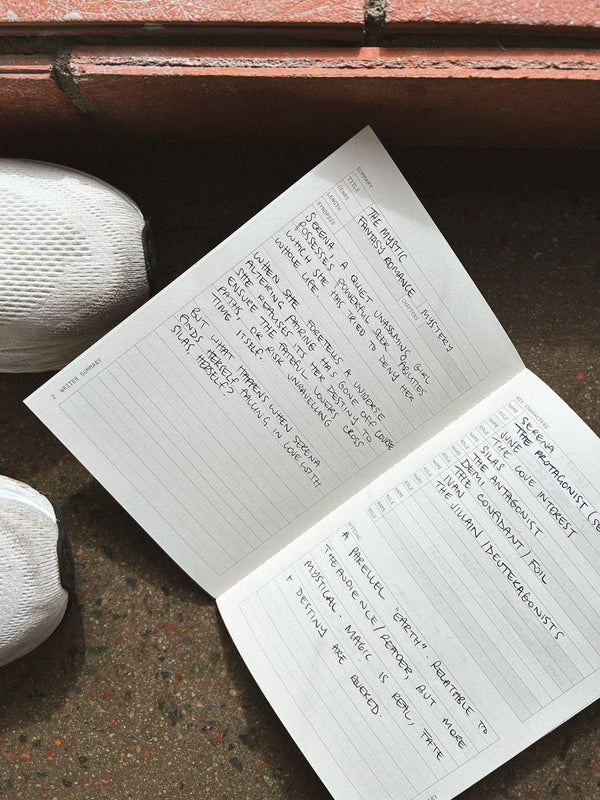 SUMMARY
TITLE THE MYSTIC
GENRE FANTASY ROMANCE / MYSTERY
LENGTH CHAPTERS
SYNOPSIS
SERENA, A QUIET UNASSUMING GIRL
POSSESSES POWERFUL SEER ABILITIES
WHICH SHE HAS TRIED TO DENY HER
WHOLE LIFE.
WHEN SHE FORETELLS A UNIVERSE
ALTERING PAIRING HAS GONE OFF COURSE
SHE REALISES ITS HER DESTINY TO
ENSURE THE FATEFUL LOVERS CROSS
PATHS, OR RISK UNRAVELLING
TIME ITSELF.
BUT WHAT HAPPENS WHEN SERENA
FINDS HERSELF FALLING IN LOVE WITH
SILAS, HERSELF?
2 WRITER SUMMARY
KEY CHARACTERS
NAME SERENA
ROLE THE PROTAGONIST (SE
NAME JUNE
ROLE THE LOVE INTEREST
NAME SILAS
ROLE THE ANTAGONIST
NAME DEMI
ROLE THE CONFIDANT / FOIL
NAME IVAN
ROLE THE VILLAIN / DEUTERAGONISTS
NAME
ROLE
NAME
ROLE
SETTING
A PARELLEL "EARTH". RELATABLE TO
THE AUDIENCE / READER, BUT MORE
MYSTICAL. MAGIC IS REAL, FATE
+ DESTINY ARE REVERED.